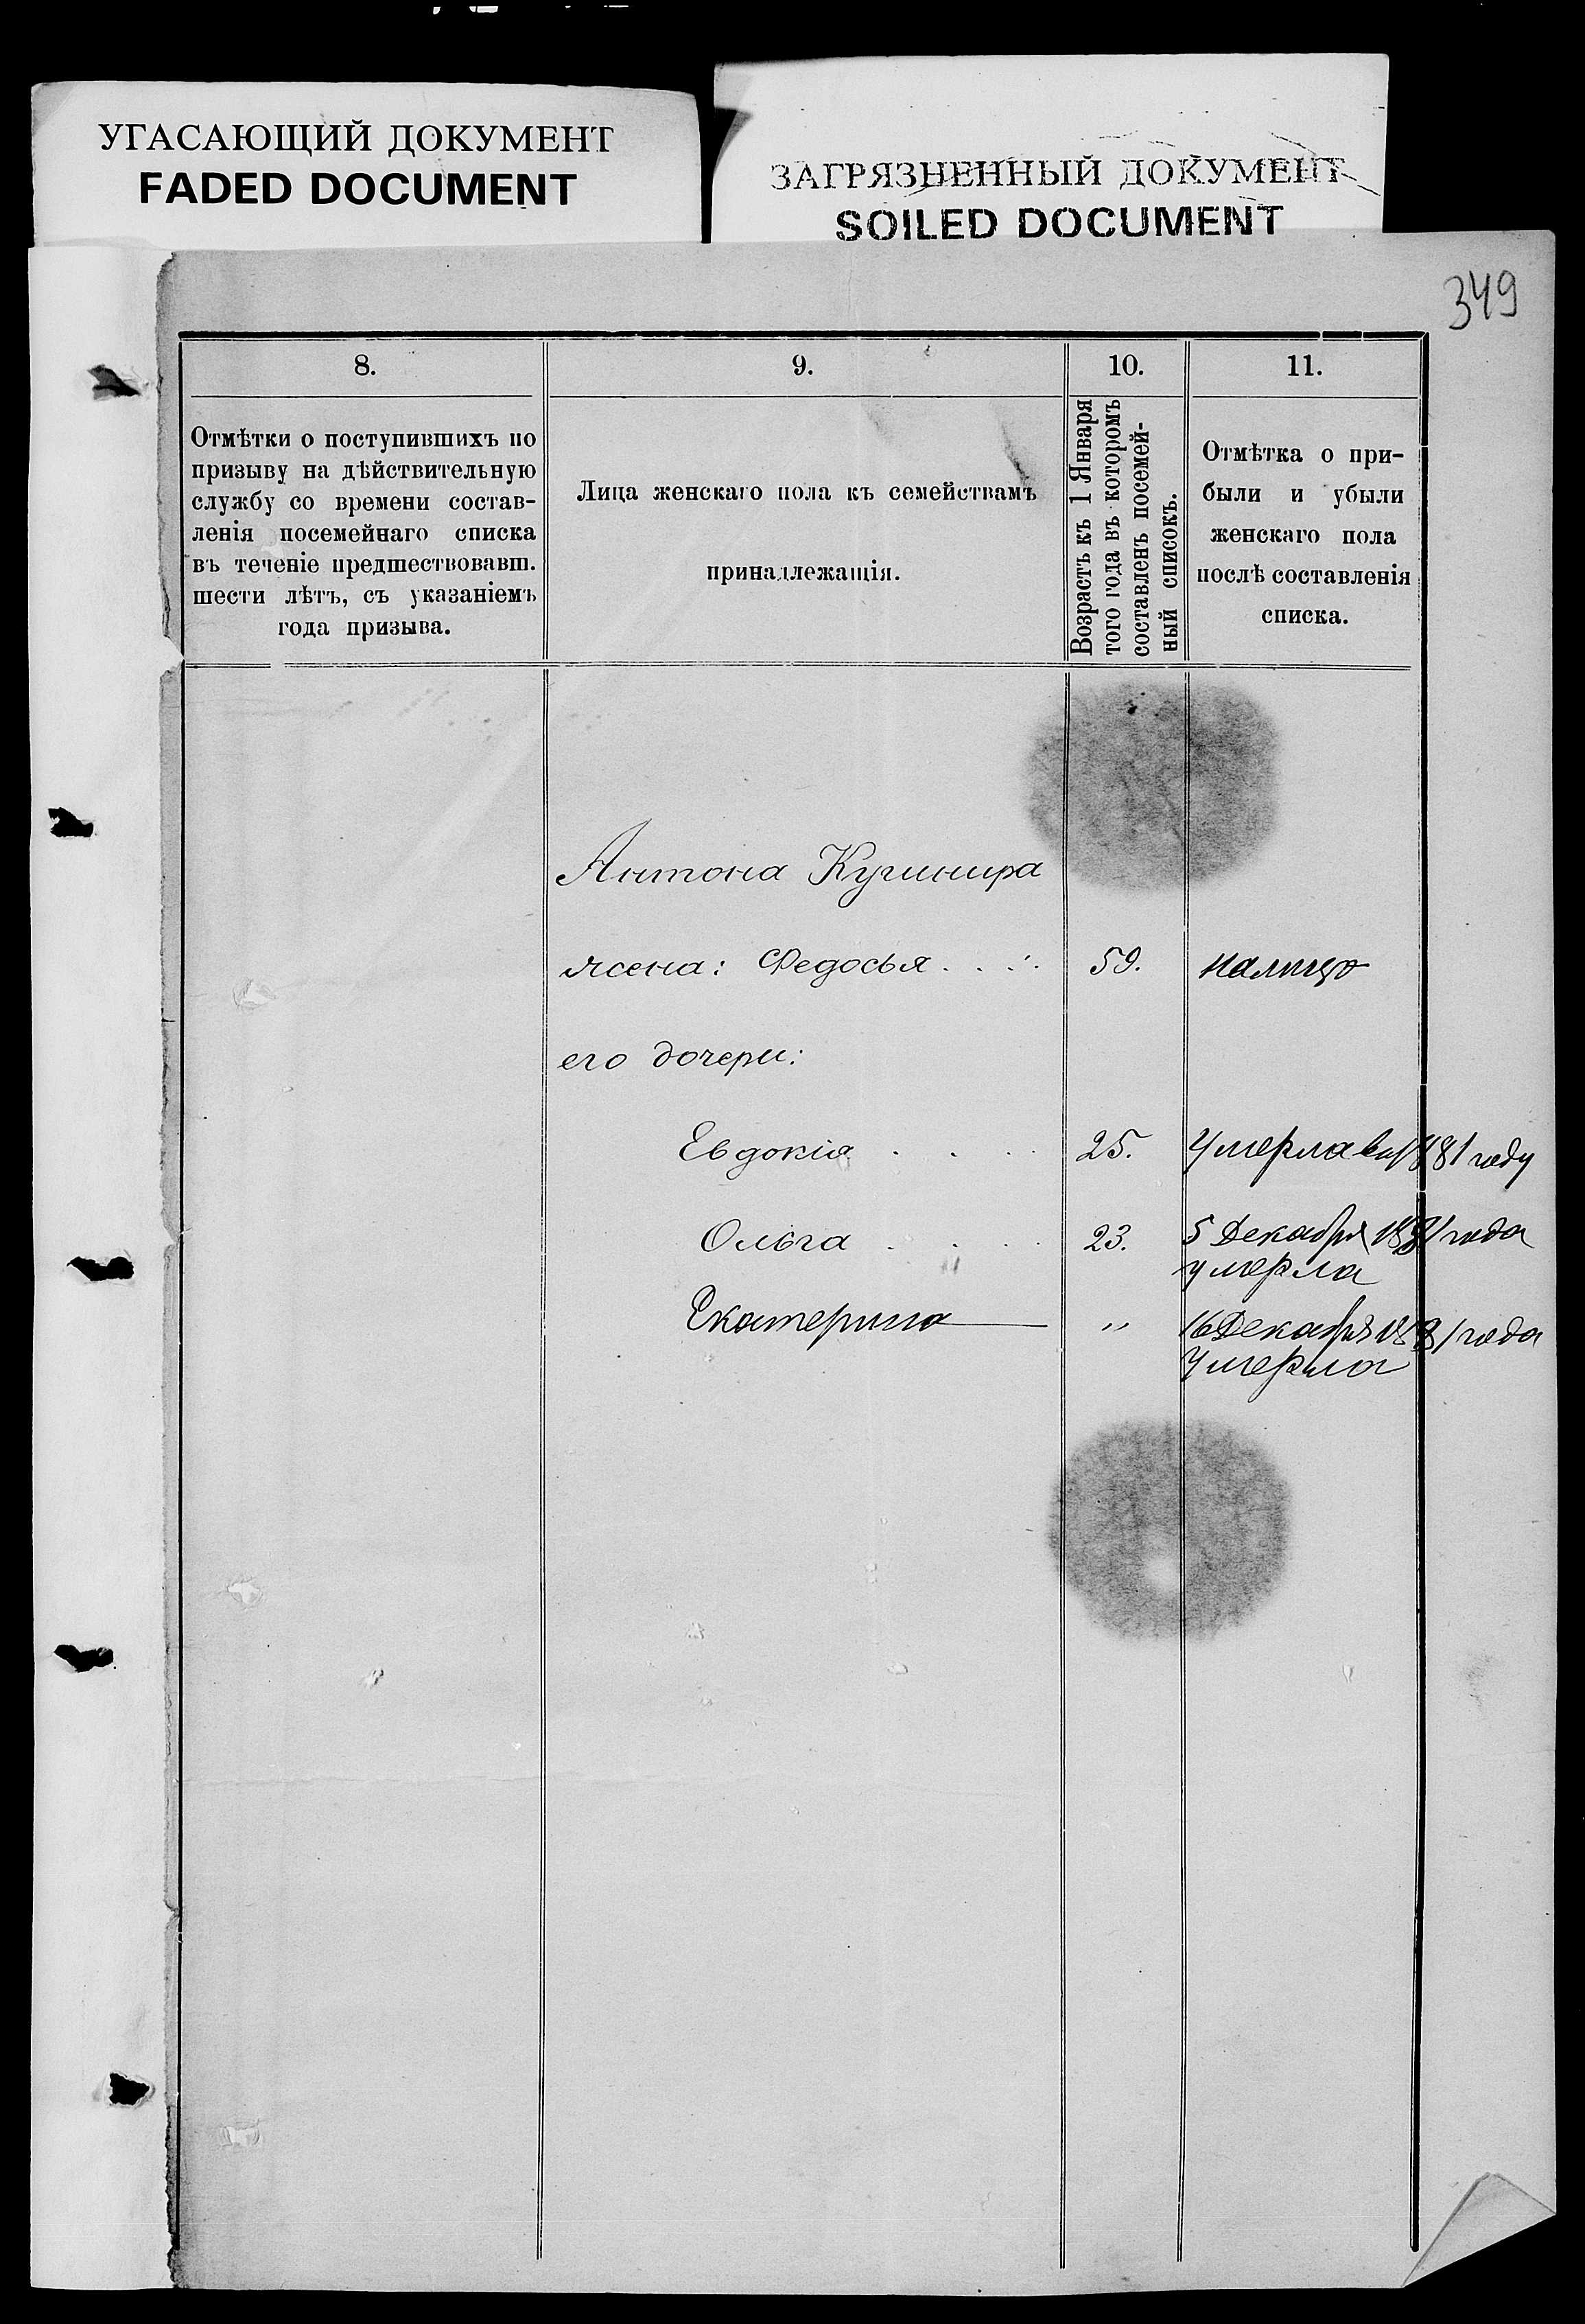 УГАСАЮЩИЙ ДОКУМЕНТ
FADED DOCUMENT
ЗАГРЯЗНЕННЫЙ ДОКУМЕНТ
SOILED DOCUMENT
349
8.
9.
10.
11.
Отмѣтки о поступившихъ по
призыву на дѣйствительную
службу со времени состав-
ленія посемейнаго списка
въ теченіе предшествовавш.
шести лѣтъ, съ указаніемъ
года призыва.
Лица женскаго пола къ семействамъ
принадлежащія.
Возрастъ къ 1 Января
того года въ которомъ
составленъ посемей-
ный списокъ.
Отмѣтка о при-
были и убыли
женскаго пола
послѣ составленія
списка.
Антона Кушнира
жена: Федосья . . . . 59. налицо
его дочери:
Евдокія . . . . 25. Умерла въ 1881 году
Ольга . . . . 23. 5 Декабря 1881 года
умерла
Екатерина — „ 16 Декабря 1881 года
Умерла